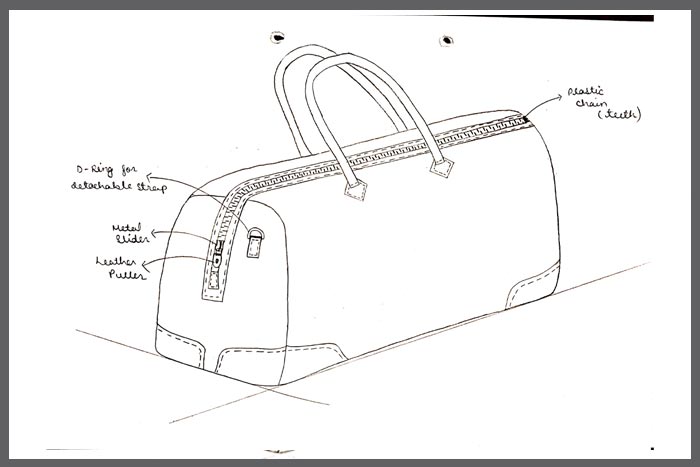 Plastic
chain
(teeth)
D-Ring for
detachable strap
Metal
Slider
Leather
Puller